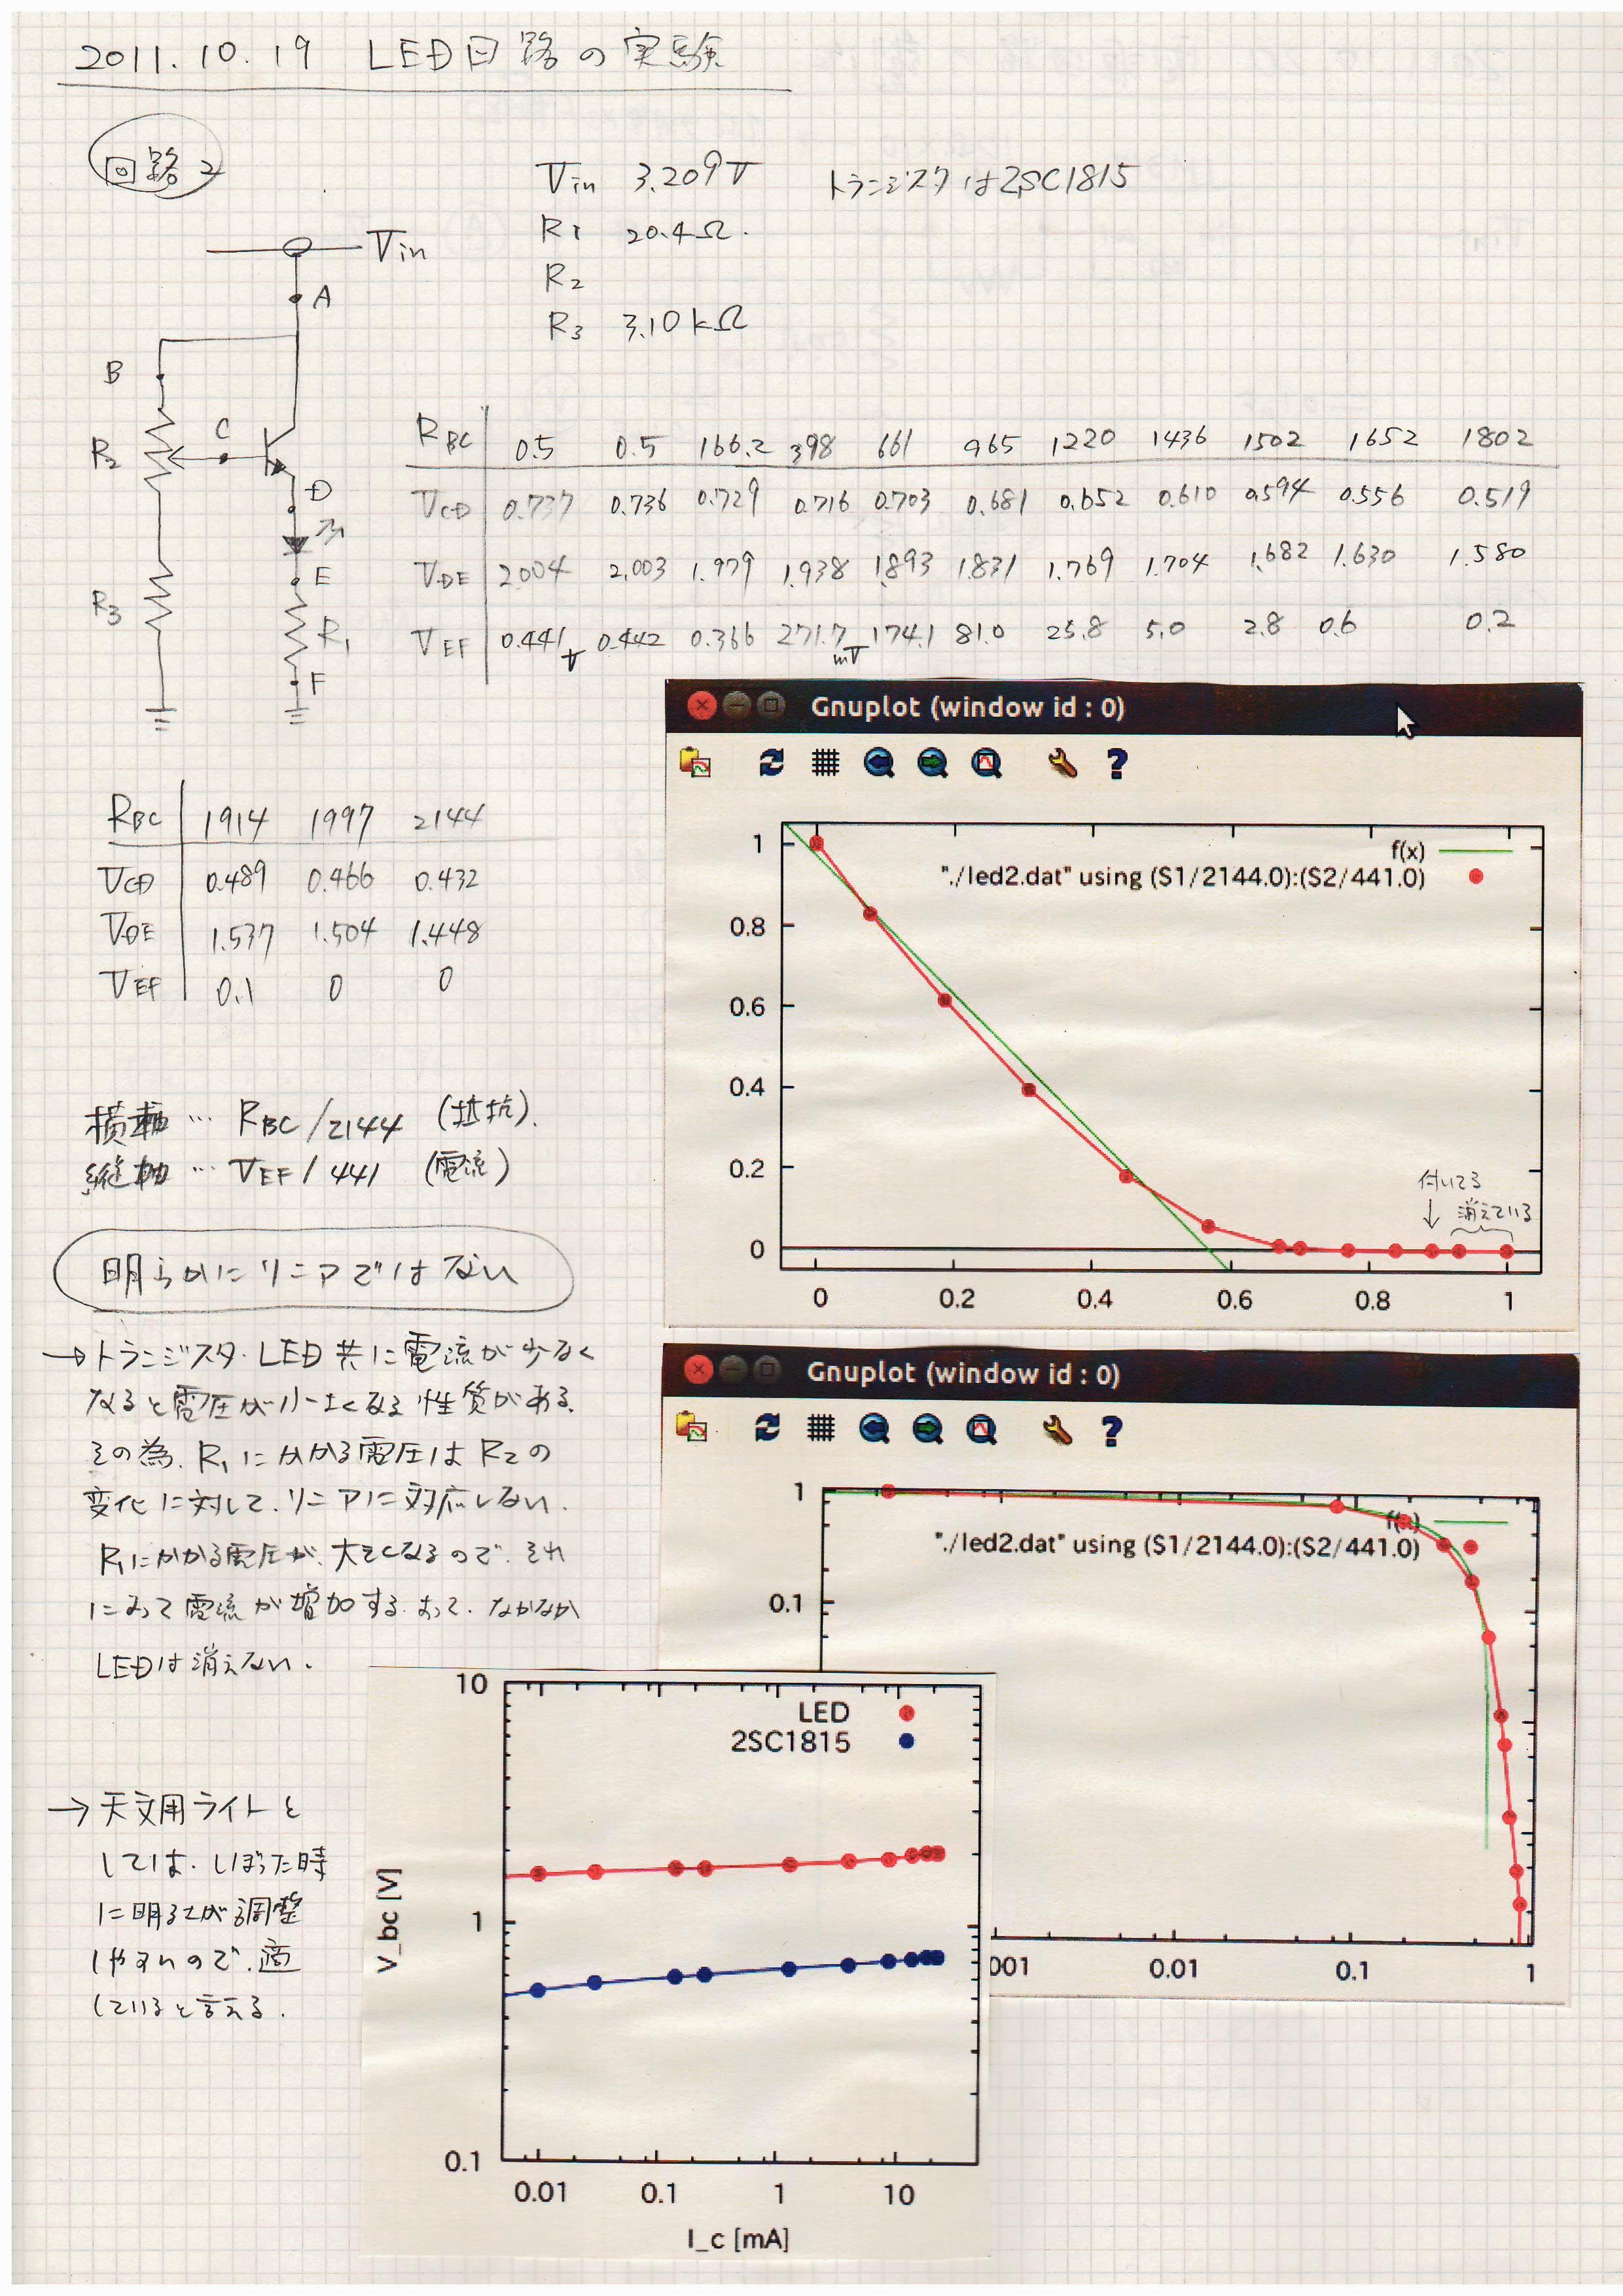 2011.10.19 LED回路の実験
回路2
Vin 3.209V トランジスタは2SC1815
R1 20.4Ω.
R2
R3 3.10kΩ
Vin
A
B
C
R2
D
E
R3
R1
F
RBC 0.5 0.5 166.2 398 661 965 1220 1436 1502 1652 1802
VCD 0.737 0.736 0.729 0.716 0.703 0.681 0.652 0.610 0.594 0.556 0.519
VDE 2.004 2.003 1.979 1.938 1.893 1.831 1.769 1.704 1.682 1.630 1.580
VEF 0.441V 0.442 0.366 271.7mV 174.1 81.0 25.8 5.0 2.8 0.6 0.2
RBC 1914 1997 2144
VCD 0.489 0.466 0.432
VDE 1.537 1.504 1.448
VEF 0.1 0 0
Gnuplot (window id : 0)
f(x)
"./led2.dat" using ($1/2144.0):($2/441.0)
1
0.8
0.6
0.4
0.2
0
付いてる
↓ 消えている
0 0.2 0.4 0.6 0.8 1
横軸 … RBC/2144 (抵抗).
縦軸 … VEF/441 (電流)
明らかにリニアではない
→トランジスタ・LED共に電流が少なく
なると電圧が小さくなる性質がある.
その為、R1にかかる電圧はR2の
変化に対して、リニアに対応しない.
R1にかかる電圧が、大きくなるので、それ
によって電流が増加する.よって、なかなか
LEDは消えない.
Gnuplot (window id : 0)
1
f(x)
"./led2.dat" using ($1/2144.0):($2/441.0)
0.1
001 0.01 0.1 1
→天文用ライトと
しては、しぼった時
に明るさが調整
しやすいので、適
していると言える.
10
LED
2SC1815
V_bc [V]
1
0.1
0.01 0.1 1 10
I_c [mA]